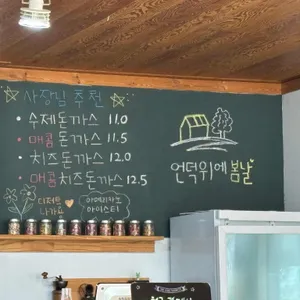 사장님 추천
• 수제돈까스 11.0
• 매콤돈까스 11.5
• 치즈돈까스 12.0
• 매콤치즈돈까스 12.5
디저트
나가요
아메리카노
아이스티
언덕위에봄날